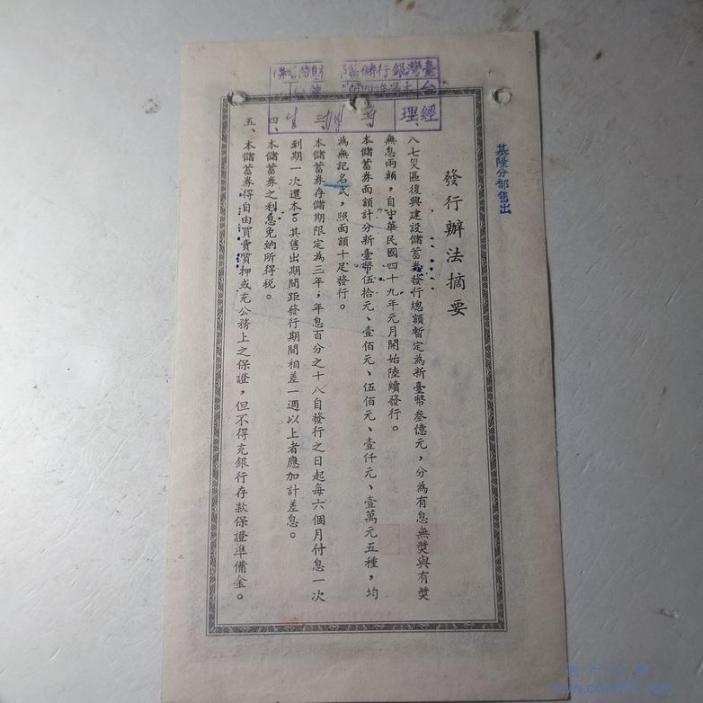 基隆分部售出
發行辦法摘要
八七災區復興建設儲蓄券發行總額暫定為新臺幣叁億元，分為有息無獎與有獎
無息兩類，自中華民國四十九年元月開始陸續發行。
本儲蓄券面額計分新臺幣伍拾元、壹佰元、伍佰元、壹仟元、壹萬元五種，均
為無記名式，照面額十足發行。
本儲蓄券存儲期限定為三年，年息百分之十八自發行之日起每六個月付息一次
到期一次還本。其售出期間距發行期間相差一週以上者應加計差息。
四、本儲蓄券之利息免納所得稅。
五、本儲蓄券得自由買賣質押或充公務上之保證，但不得充銀行存款保證準備金。
臺灣銀行儲蓄部
經理